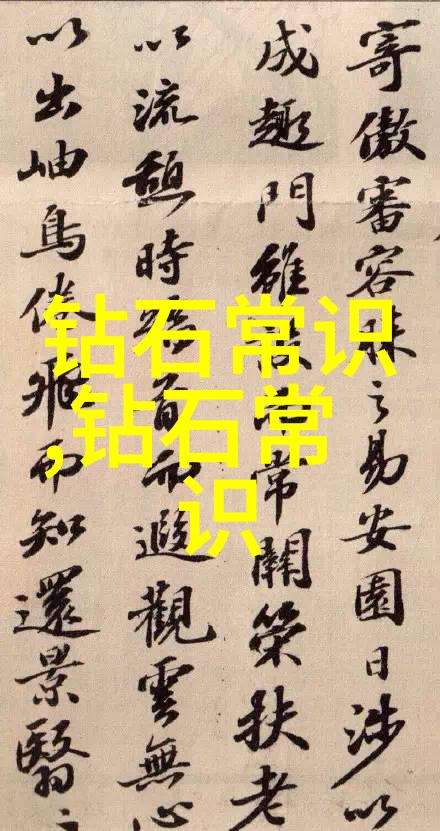 寄傲審容膝之易安園日涉以
成趣門雖設而常關策扶老
以流憩時矯首而遐觀雲無心
以出岫鳥倦飛而知還景翳
钻石常识
,钻石常
识